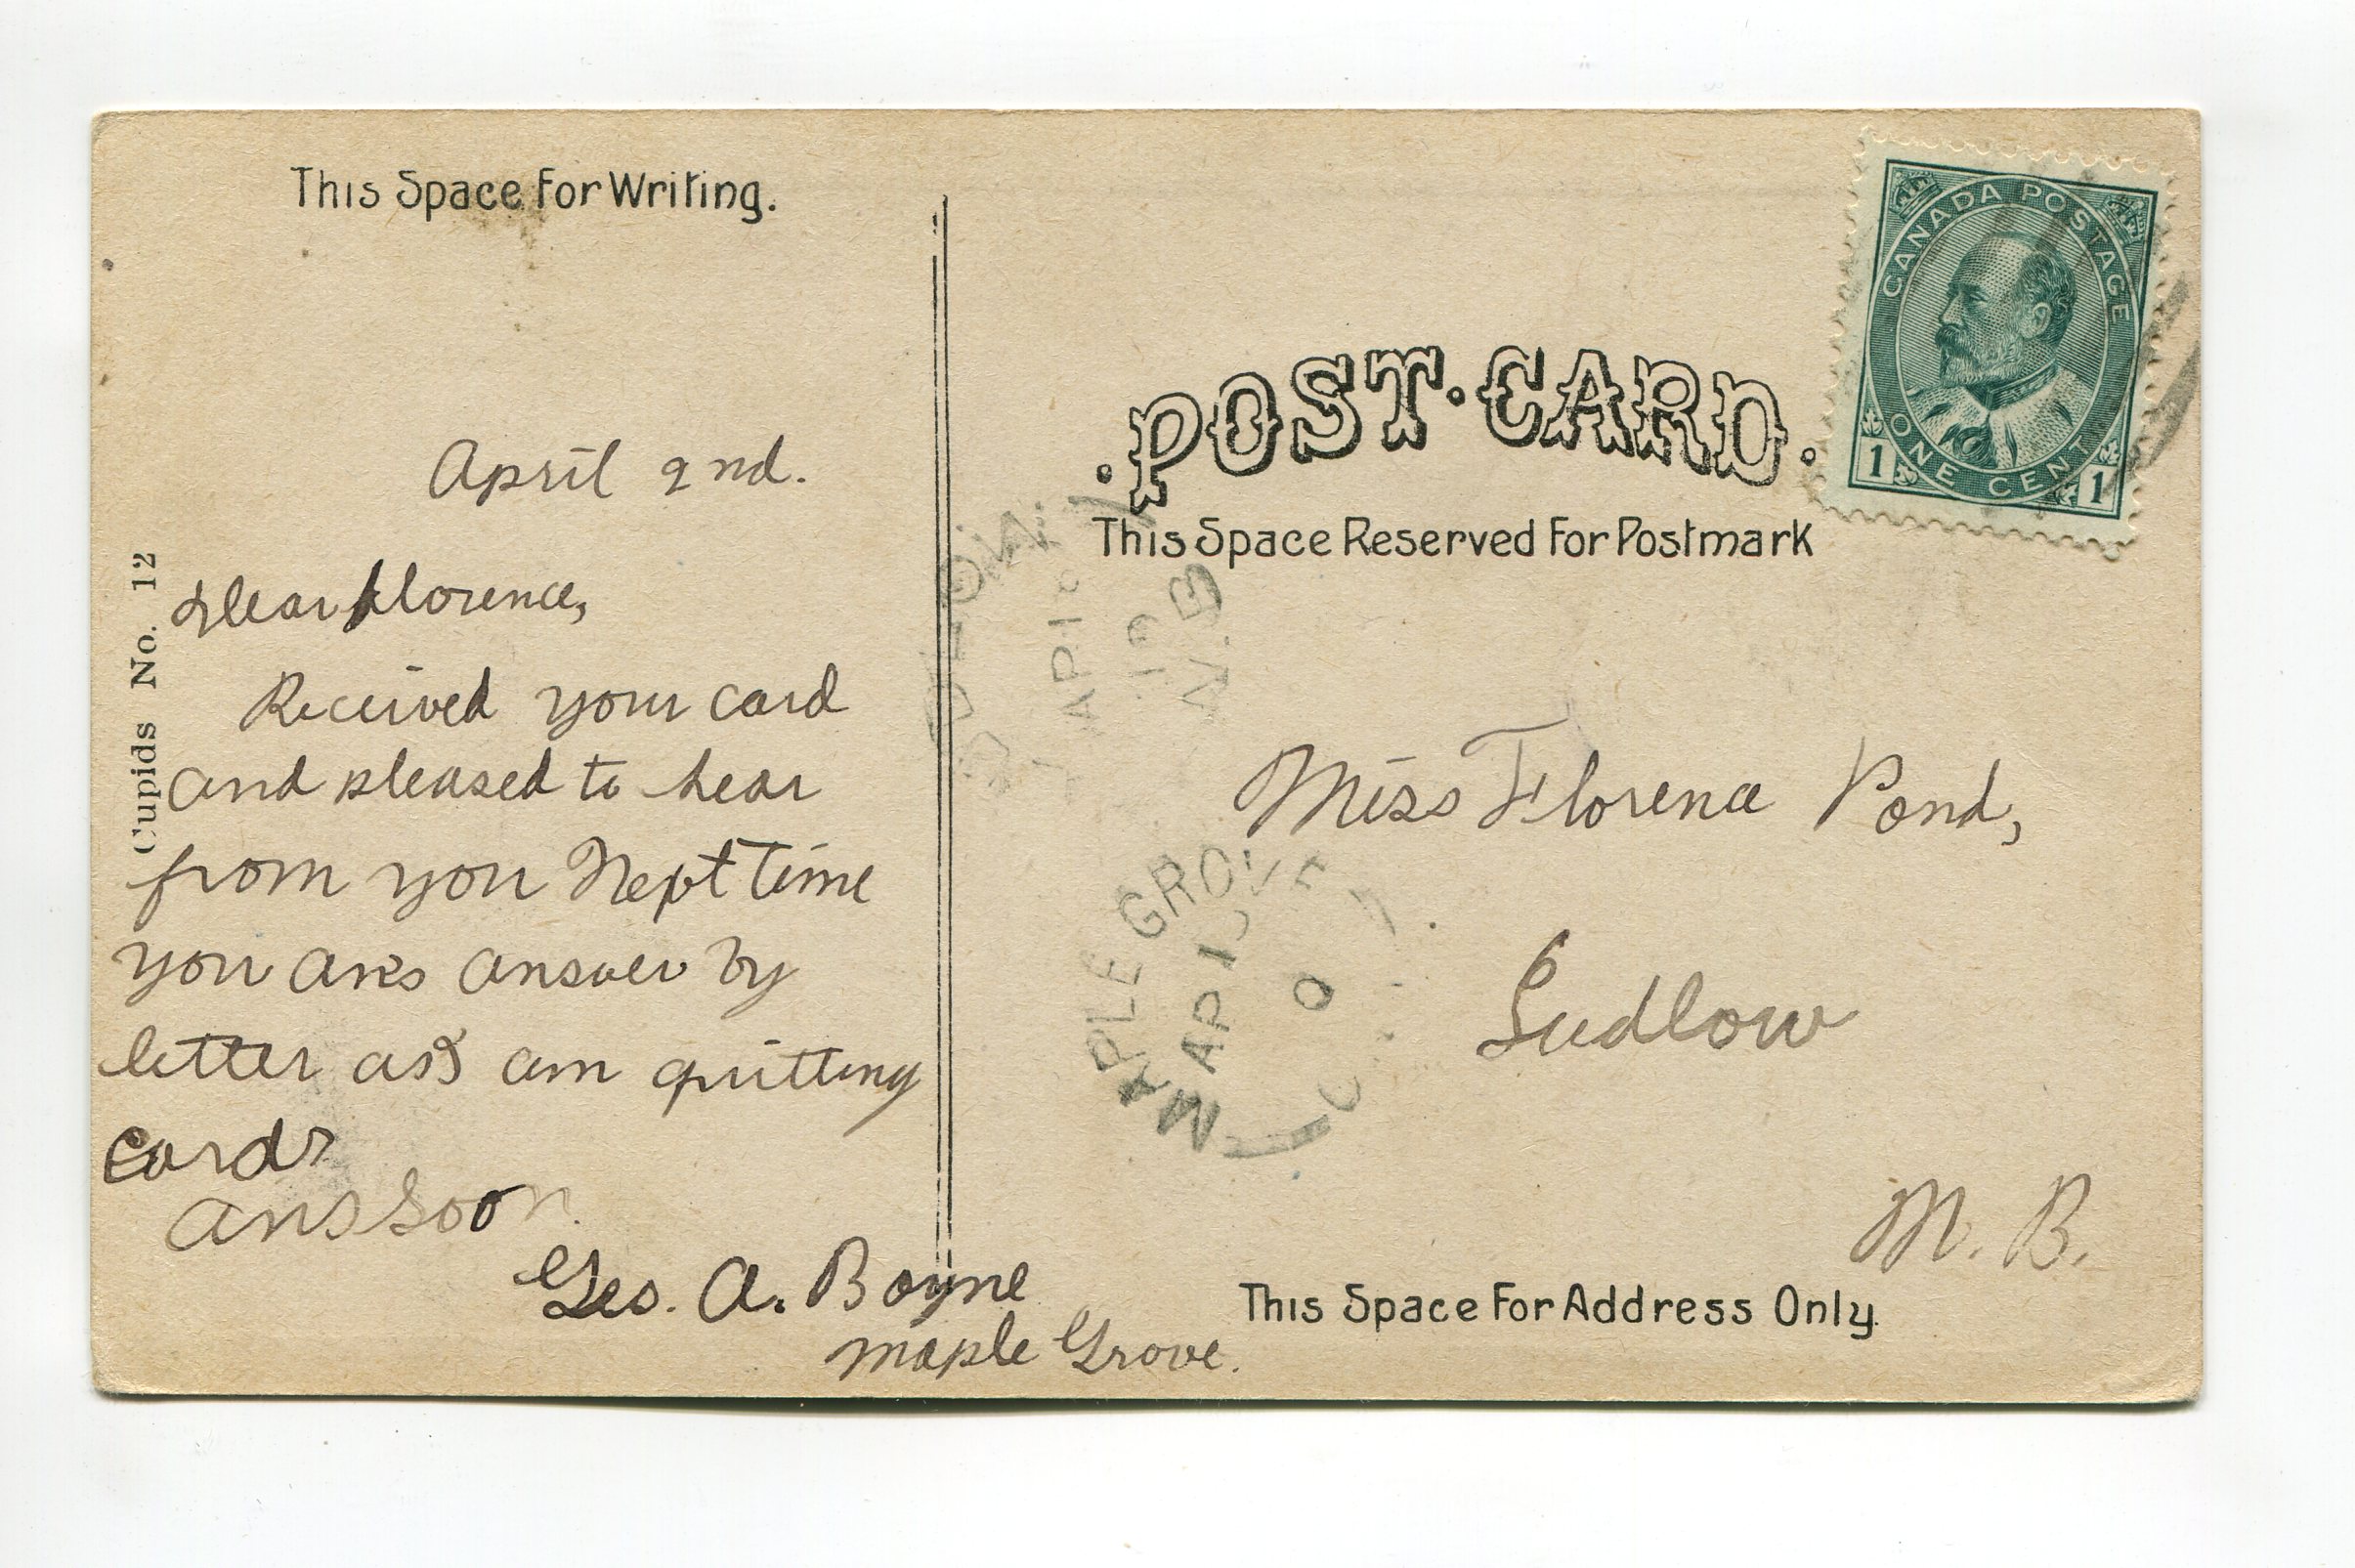 This Space For Writing.
April 2nd.
Dear Florence,
Received your card
and pleased to hear
from you Next time
you ans answer by
letter as I am quitting
cards
ans soon.
Geo. A. Boyne
Maple Grove.
Cupids No. 12
POST CARD.
This Space Reserved For Postmark
CANADA POSTAGE
ONE CENT
1 1
AP 1
N.B
MAPLE GROVE
AP 1
Miss Florence Pond,
Ludlow
N. B.
This Space For Address Only.